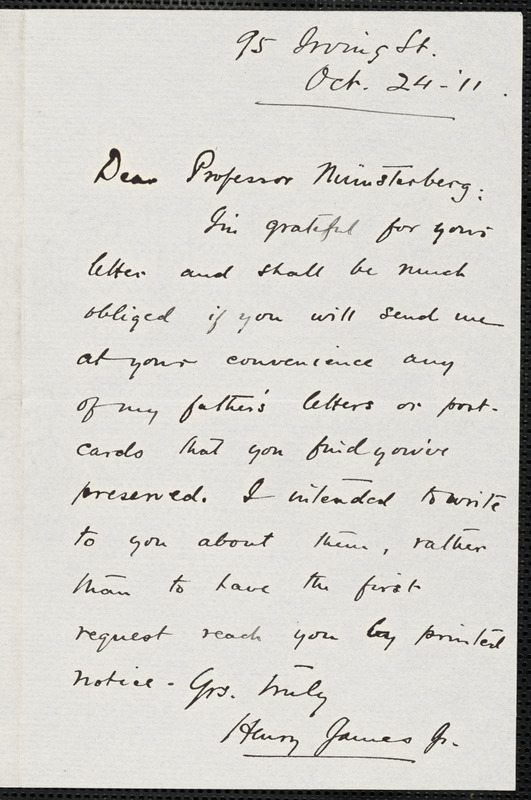 95 Irving St.
Oct. 24-'11.
Dear Professor Münsterberg:
I'm grateful for your
letter and shall be much
obliged if you will send me
at your convenience any
of my father's letters or post-
cards that you find you've
preserved. I intended to write
to you about them, rather
than to have the first
request reach you by printed
notice - Yrs. truly
Henry James Jr.